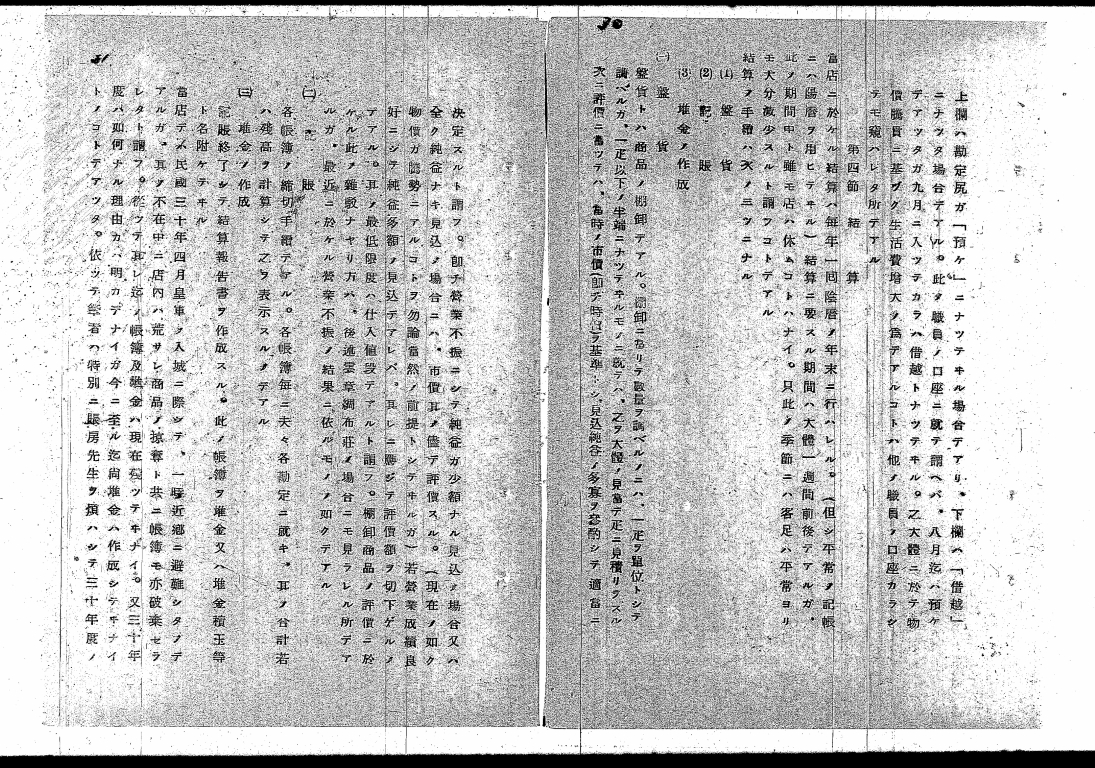 30
上欄ハ勘定尻ガ「預ケ」ニナツテヰル場合デアリ。下欄ハ「借越」
ニナツタ場合デアル。此ノ職員ノ口座ニ就テ謂ヘバ、八月迄ハ預ケ
デアツタガ九月ニ入ツテカラハ借越トナツテヰル。之大體ニ於テ物
價騰貴ニ基ヅク生活費增大ノ爲デアルコトハ他ノ職員ノ口座カラシ
テモ窺ハレタ所デアル
第四節 結算
當店ニ於ケル結算ハ每年一回陰曆ノ年末ニ行ハレル。(但シ平常ノ記帳
ニハ陽曆ヲ用ヒテヰル)結算ニ要スル期間ハ大體一週間前後デアルガ、
此ノ期間中ト雖モ店ハ休ムコトハナイ。只此ノ季節ニハ客足ハ平常ヨリ
モ大分減少スルト謂フコトデアル
結算ノ手續ハ次ノ三ツニナル
(1) 盤貨
(2) 記賬
(3) 堆金ノ作成
(一) 盤貨
盤貨トハ商品ノ棚卸デアル。棚卸ニ當リテ數量ヲ調ベルノニハ、一疋ヲ單位トシテ
調ベルガ、一疋以下ノ半端ニナツテヰルモノニ就テハ、之ヲ大體ノ見當デ疋ニ見積リスル
次ニ評價ニ當ツテハ、當時ノ市價(即チ時
ヲ基準トシ、見込純益ノ多寡ヲ斟酌シテ適當ニ
31
決定スルト謂フ。卽チ營業不振ニシテ純益ガ少額ナル見込ノ場合又ハ
全ク純益ナキ見込ノ場合ニハ、市價其ノ儘デ評價スル。(現在ノ如ク
物價ガ騰勢ニアルコトヲ勿論當然ノ前提トシテヰルガ)若營業成績良
好ニシテ純益多額ノ見込デアレバ、其レニ應ジテ評價額ヲ切下ゲルノ
デアル。其ノ最低限度ハ仕入値段デアルト謂フ。棚卸商品ノ評價ニ於
ケル此ノ難駁ナヤリ方ハ、後述雲章綢布莊ノ場合ニモ見ラレル所デア
ルガ、最近ニ於ケル營業不振ノ結果ニ依ルモノノ如クデアル
(二) 記賬
各帳簿ノ締切手續デアル。各帳簿每ニ夫々各勘定ニ就キ、其ノ合計若
ハ殘高ヲ計算シテ之ヲ表示スルノデアル
(三) 堆金ノ作成
記賬終了シテ結算報告書ヲ作成スル。此ノ帳簿ヲ堆金又ハ堆金積玉等
ト名附ケテヰル
當店デハ民國三十年四月皇軍ノ入城ニ際シテ、一時近鄉ニ避難シタノデ
アルガ、其ノ不在中ニ店內ハ荒サレ商品ノ掠奪ト共ニ帳簿モ亦破棄セラ
レタト謂フ。從ツテ其レ迄ノ帳簿及堆金ハ現在殘ツテヰナイ。又三十年
度ハ如何ナル理由カハ明カデナイガ今ニ至ル迄尙堆金ハ作成シテヰナイ
トノコトデアツタ。依ツテ筆者ハ特別ニ賬房先生ヲ煩ハシテ三十年度ノ